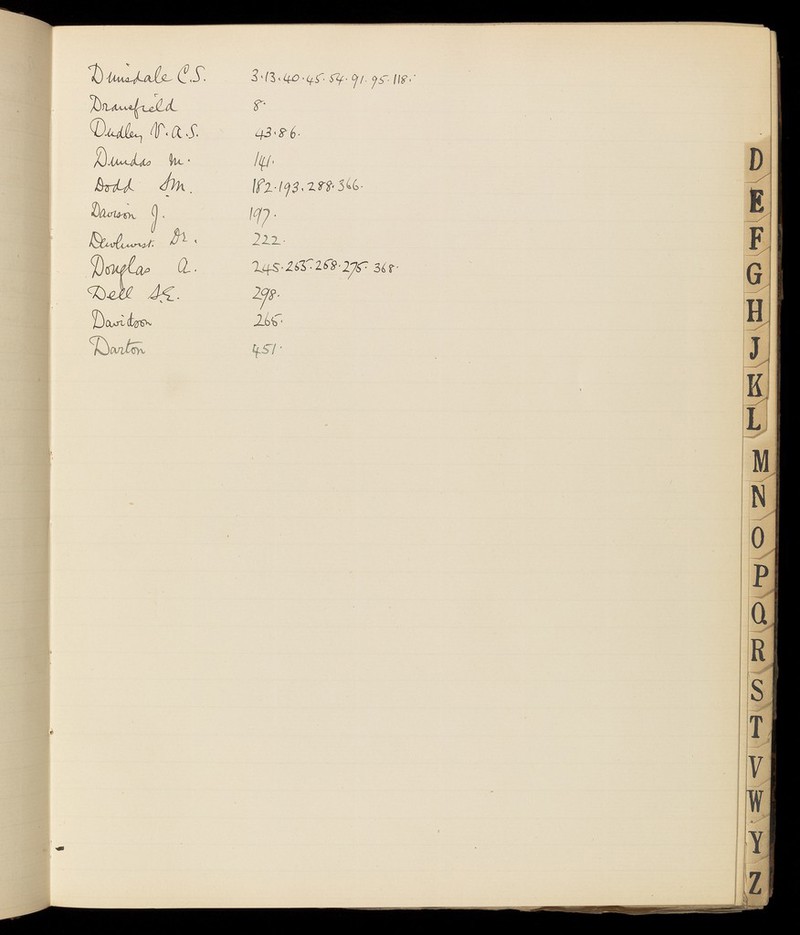 Dunsdale C.S. 3·13·40·45·54·91·95·118·
Dransfield 8·
Dudley V.A.S. 43·86·
Dundas M· 141·
Dodd 182·193·288·366·
Davison J. 197·
Dewhurst Dr. 222·
Douglas A. 245·265·268·275· 368·
Dell S.E. 298·
Davidson 266·
Darton 451·
D
E
F
G
H
J
K
L
M
N
O
P
Q
R
S
T
V
W
Y
Z